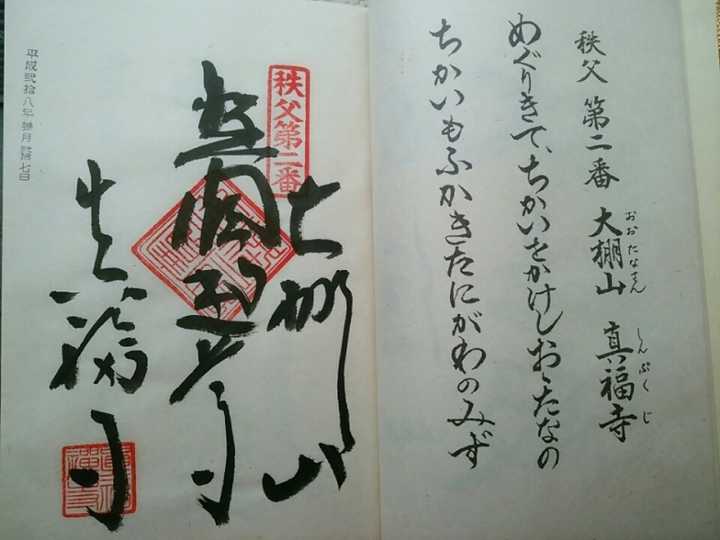 秩父 第二番 大棚山 真福寺
おおたなさん しんぷくじ
めぐりきて、ちかいをかけしおゝたなの
ちかいもふかきたにがわのみず
秩父第二番
大棚山
真福寺
平成弐拾八年